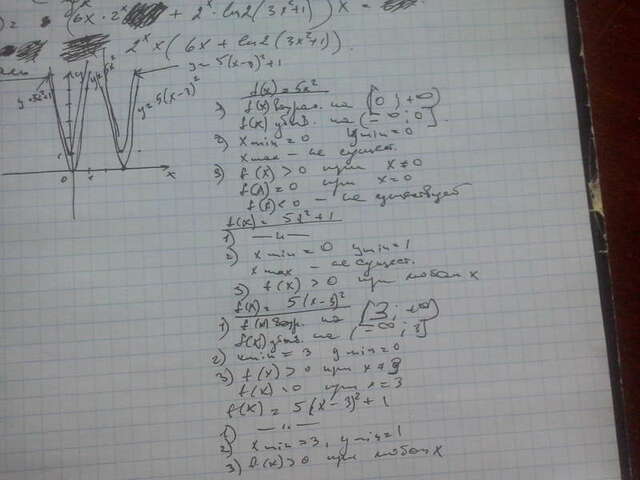 (6x · 2ˣ + 2ˣ · ln2 (3x²+1)) x =
2ˣ x (6x + ln2 (3x²+1)).
y = 5(x-3)²+1
y=5x²+1
y=5x²
y=5(x-3)²
y
x
0
1
f(x) = 5x²
1) f(x) возрас. на [0; +∞)
f(x) убыв. на (-∞; 0].
2) x min = 0 y min = 0
x max – не сущест.
3) f(x) > 0 при x ≠ 0
f(x) = 0 при x = 0
f(x) < 0 – не существует
f(x) = 5x²+1
1) — " —
2) x min = 0 y min = 1
x max – не сущест.
3) f(x) > 0 при любом x
f(x) = 5(x-3)²
1) f(x) возр. на [3; +∞)
f(x) убыв. на (-∞; 3]
2) x min = 3 y min = 0
3) f(x) > 0 при x ≠ 3
f(x) = 0 при x = 3
f(x) = 5(x-3)² + 1
1) — " —
2) x min = 3, y min = 1
3) f(x) > 0 при любом x